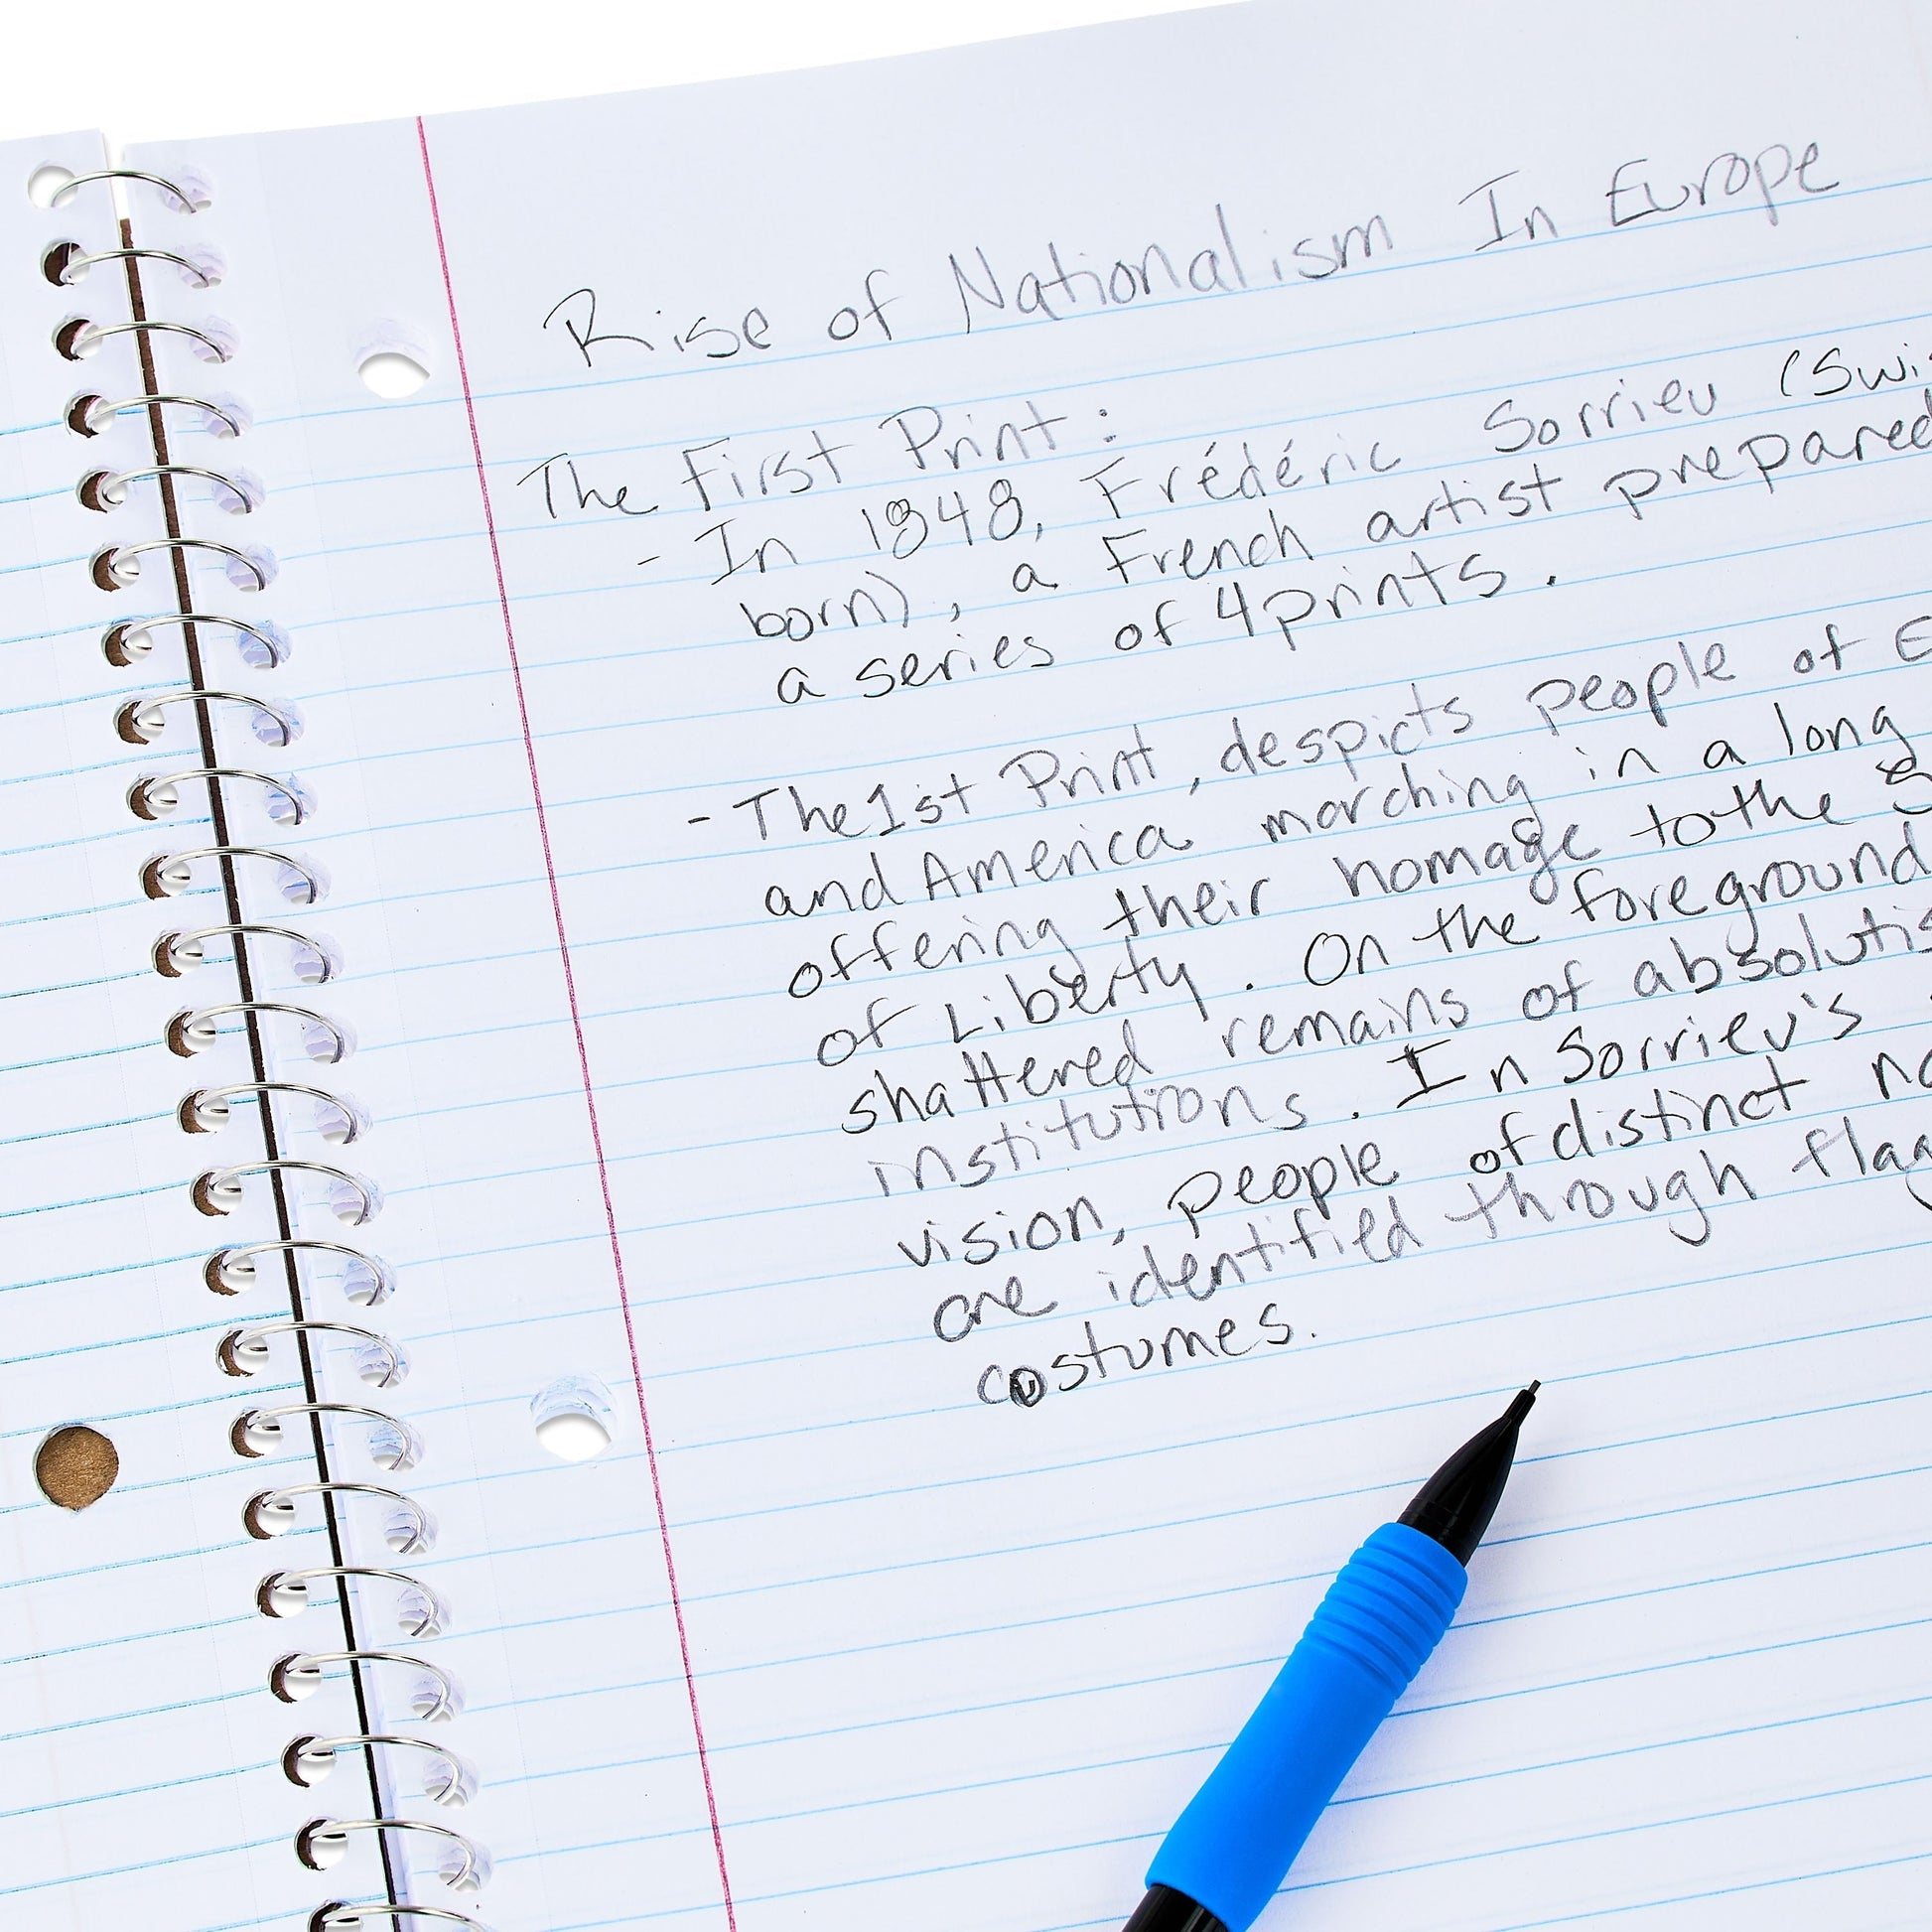 Rise of Nationalism In Europe
The First Print:
- In 1848, Frédéric Sorrieu (Swi
born), a French artist prepared
a series of 4 prints.
- The 1st Print, despicts people of E
and America marching in a long
offering their homage to the S
of Liberty. On the foreground
shattered remains of absolutis
institutions. In Sorrieu's
vision, people of distinct na
are identified through flag
costumes.